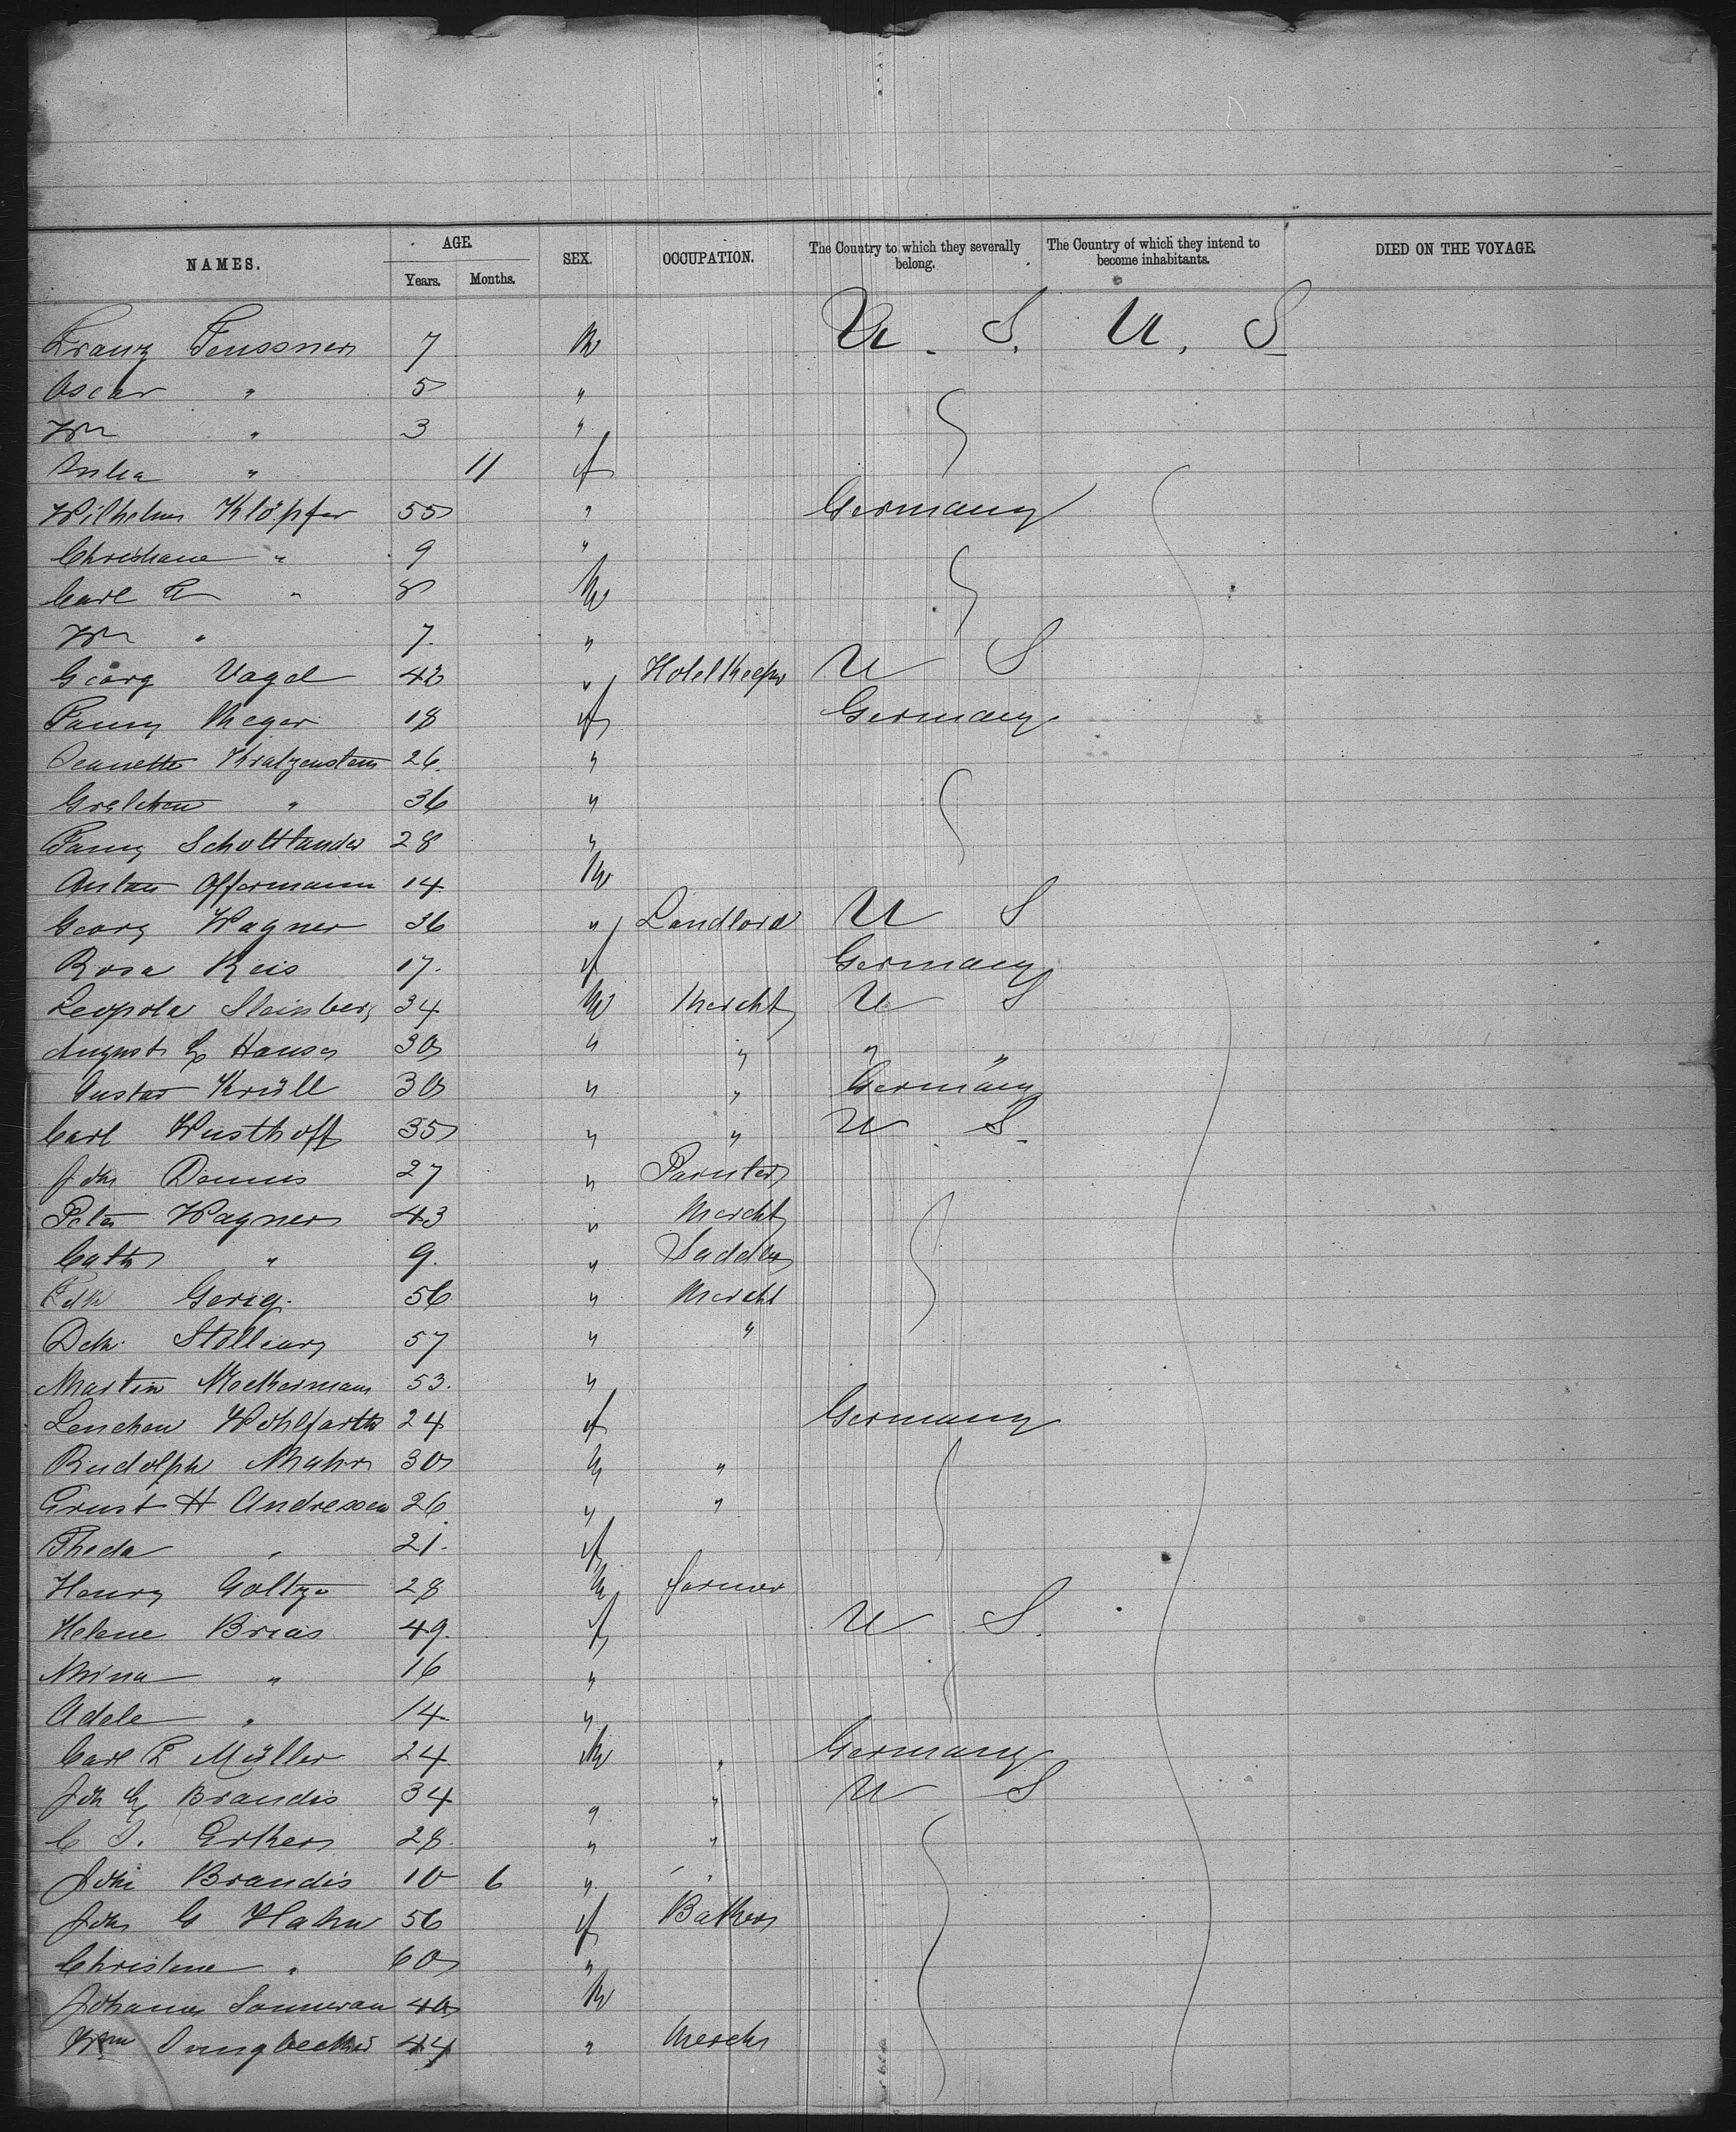 NAMES. AGE. SEX. OCCUPATION. The Country to which they severally belong. The Country of which they intend to become inhabitants. DIED ON THE VOYAGE.
Years. Months.
Franz Feussner 7 M U. S. U. S
Oscar " 5 "
Wm " 3 "
Julia " 11 f
Wilhelm Klöpfer 55 " Germany
Christiane " 9 "
Carl E " 8 M
Wm " 7. "
Georg Vagel 43 " Hotel Keeper U S
Fanny Meyer 18 f Germany
Jeanette Kratzenstein 26. "
Gretchen " 36 "
Fanny Schottlander 28 "
Anton Offermann 14 M
Georg Wagner 36 " Landlord U S
Rosa Reis 17. f Germany
Leopold Steinberg 34 M Mercht U S
August G Hansen 30 " " " "
Gustav Krüll 30 " " Germany
Carl Wusthoff 35 " " U S.
Joh Dennis 27 " Painter
Peter Wagner 43 " Mercht
Cath " 9. " Saddler
Fdk Gerig. 56 " Mercht
Dch. 57 " "
Martin 53. "
Lenchen Wohlfarth 24 f Germany
Rudolph Mahr 30 M "
Ernst H Andressen 26 " "
Theda " 21. f
Henry Goltze 28 M farmer
Helene Brias 49. f U S.
Mina " 16 "
Adele " 14 "
Carl L Müller 24 M " Germany
Joh G Brandis 34 " " U S
C J. Erkers 28. " "
Joh Brandis 10 6 " "
Joh G Hahn 56 f Baker
Christine " 60 "
Johannes 40 M
Wm Jungbecker 44 " Merch